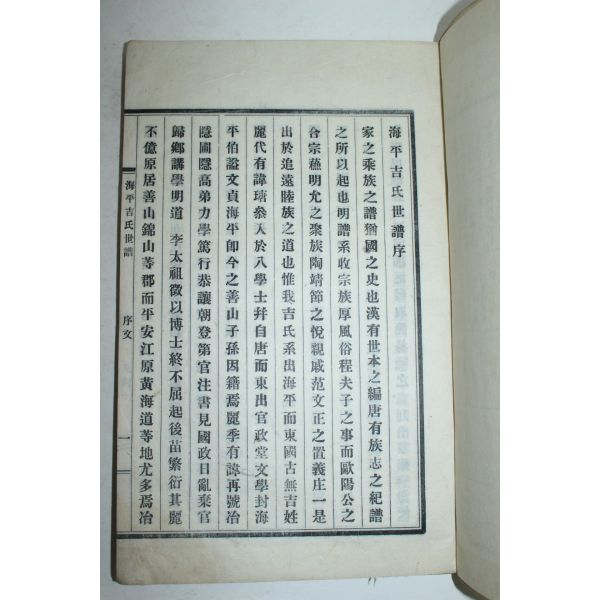 海平吉氏世譜序
家之乘族之譜猶國之史也漢有世本之編唐有族志之紀譜
之所以起也明譜系收宗族厚風俗程夫子之事而歐陽公之
合宗蘓明允之聚族陶靖節之悅親戚范文正之置義庄一是
出於追遠睦族之道也惟我吉氏系出海平而東國古無吉姓
麗代有諱瑭叅入於八學士幷自唐而東出官政堂文學封海
平伯謚文貞海平卽今之善山子孫因籍焉麗季有諱再號冶
隱圃隱高弟力學篤行恭讓朝登第官注書見國政日亂棄官
歸鄕講學明道 李太祖徵以博士終不屈起後苗繁衍其麗
不億原居善山錦山䓁郡而平安江原黃海道䓁地尤多焉冶
海平吉氏世譜 序文 一